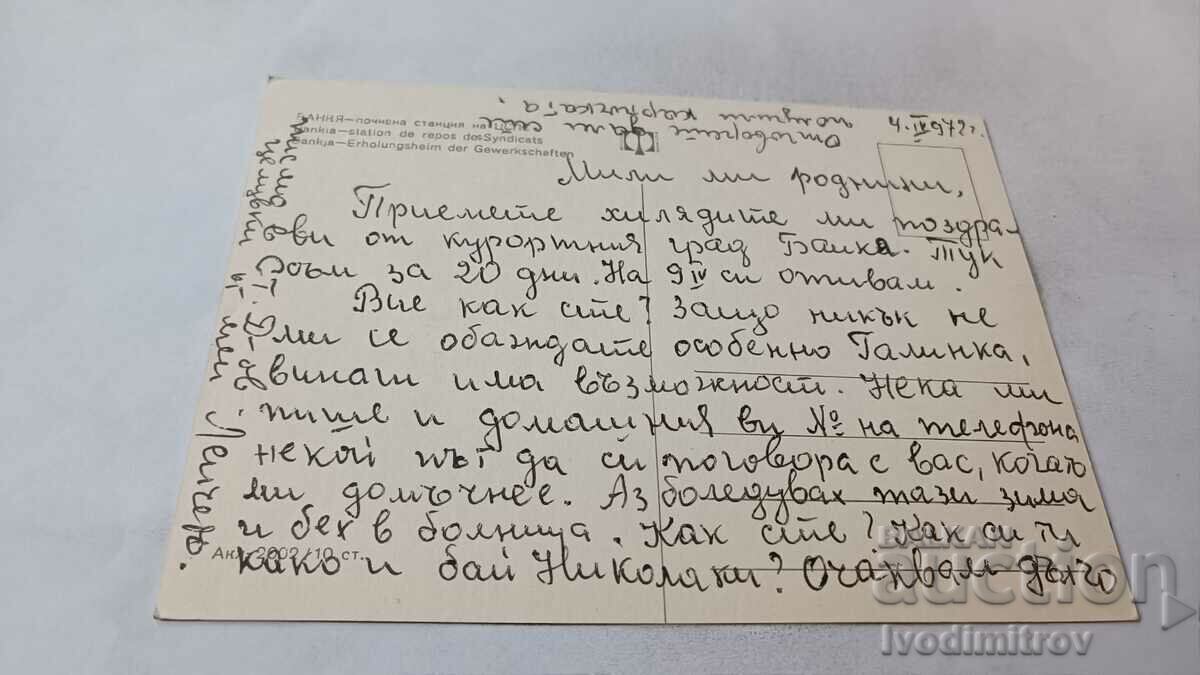 БАНКЯ—почивна станция на ЦСПС
Bankia—station de repos des Syndicats
Bankja—Erholungsheim der Gewerkschaften
4.IV 972 г.
Мили ми роднини,
Приемете хилядите ми поздра-
ви от курортния град Банкя. Тук
съм за 20 дни. На 9 IV си отивам.
Вие как сте? Защо никък не
ми се обаждате особенно Галинка,
винаги има възможност. Нека ми
пише и домашния ви № на телефона
некой път да си поговора с вас, когато
ми домъчнее. Аз боледувах тази зима
и бех в болница. Как сте? Как си ти
како и бай Николаки? Очаквам дълго
писмо
целувки
от
Отговорете дали сте
получили картичката.
Акл 2002/10 ст.
BALKAN
auction
Ivodimitrov